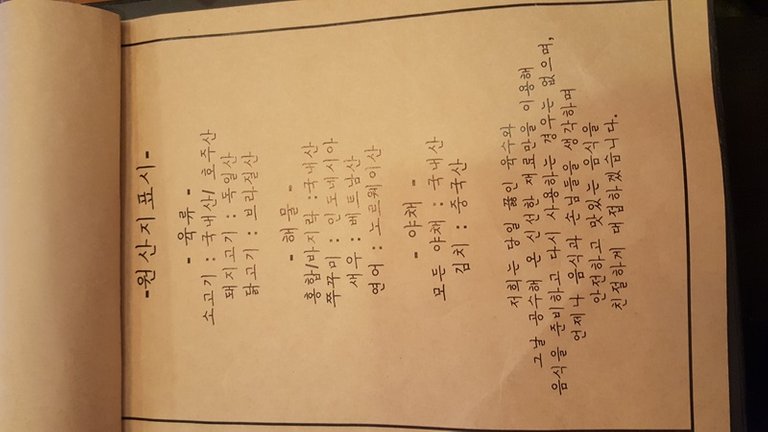 -원산지표시-
- 육류 -
소고기 : 국내산/ 호주산
돼지고기 : 독일산
닭고기 : 브라질산
- 해물 -
홍합/바지락 :국내산
쭈꾸미 : 인도네시아
새우 : 베트남산
연어 : 노르웨이산
- 야채 -
모든 야채 : 국내산
김치 : 중국산
저희는 당일 끓인 육수와
그날 공수해 온 신선한 재료만을 이용해
음식을 준비하고 다시 사용하는 경우는 없으며,
언제나 음식과 손님들을 생각하며
안전하고 맛있는 음식을
친절하게 대접하겠습니다.